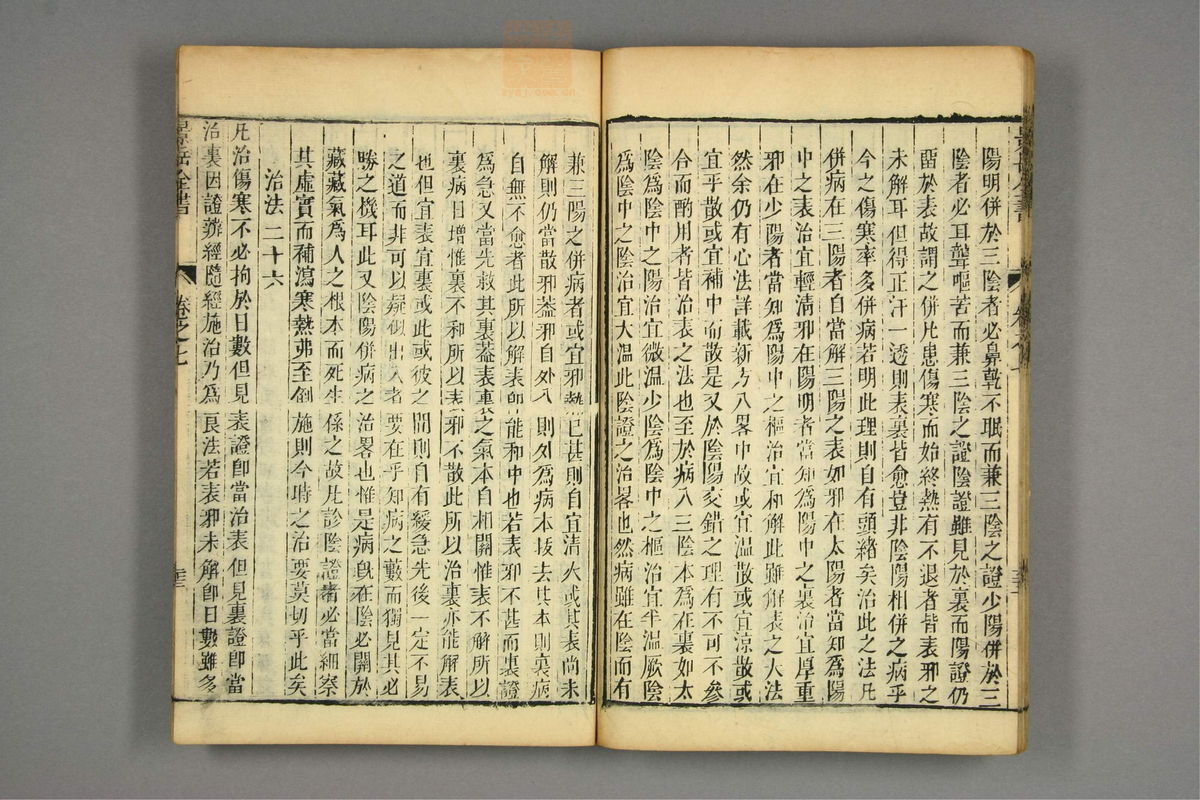 陽明併於三陰者必鼻乾不眠而兼三陰之證少陽併於三
陰者必耳聾嘔苦而兼三陰之證陰證雖見於裏而陽證仍
留於表故謂之併凡患傷寒而始終熱有不退者皆表邪之
未解耳但得正汗一透則表裏皆愈豈非陰陽相併之病乎
今之傷寒率多併病若明此理則自有頭緒矣治此之法凡
併病在三陽者自當解三陽之表如邪在太陽者當知爲陽
中之表治宜輕清邪在陽明者當知爲陽中之裏治宜厚重
邪在少陽者當知爲陽中之樞治宜和解此雖解表之大法
然余仍有心法詳載新方八畧中故或宜温散或宜涼散或
宜平散或宜補中而散是又於陰陽交錯之理有不可不參
合而酌用者皆治表之法也至於病入三陰本爲在裏如太
陰爲陰中之陽治宜微温少陰爲陰中之樞治宜半温厥陰
爲陰中之陰治宜大温此陰證之治畧也然病雖在陰而有
兼三陽之併病者或宜邪熱已甚則自宜清火或其表尚未
解則仍當散邪葢邪自外入則外爲病本拔去其本則裏病
自無不愈者此所以解表即能和中也若表邪不甚而裏證
爲急又當先救其裏葢表裏之氣本自相關惟表不解所以
裏病日增惟裏不和所以表邪不散此所以治裏亦能解表
也但宜表宜裏或此或彼之間則自有緩急先後一定不易
之道而非可以疑似出入者要在乎知病之藪而獨見其必
勝之機耳此又陰陽併病之治畧也惟是病旣在陰必關於
藏藏氣爲人之根本而死生係之故凡診陰證者必當細察
其虛實而補瀉寒熱弗至倒施則今時之治要莫切乎此矣
治法 二十六
凡治傷寒不必拘於日數但見表證卽當治表但見裏證卽當
治裏因證辨經隨經施治乃爲良法若表邪未解卽日數雖多
景岳全書
卷之七